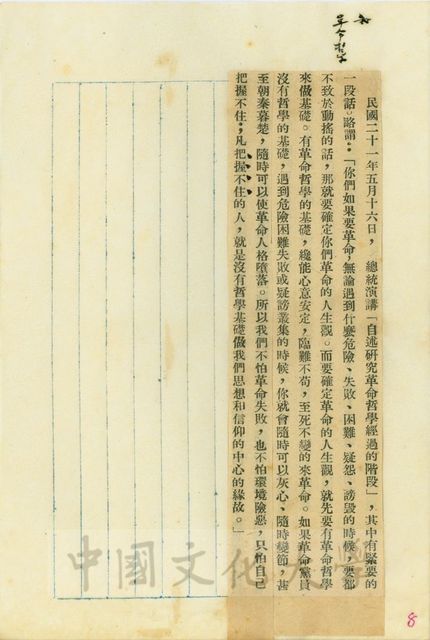 革命哲學
民國二十一年五月十六日，　總統演講「自述研究革命哲學經過的階段」，其中有緊要的
一段話，略謂：「你們如果要革命，無論遇到什麼危險、失敗、困難、疑怨、謗毀的時候，要都
不致於動搖的話，那就要確定你們革命的人生觀。而要確定革命的人生觀，就先要有革命哲學
來做基礎。有革命哲學的基礎，纔能心意安定，臨難不苟，至死不變的來革命。如果革命黨員
沒有哲學的基礎，遇到危險困難失敗或疑謗叢集的時候，你就會隨時可以灰心、隨時變節，甚
至朝秦暮楚，隨時可以使革命人格墮落。所以我們不怕革命失敗，也不怕環境險惡，只怕自己
把握不住；凡把握不住的人，就是沒有哲學基礎做我們思想和信仰的中心的緣故。」
中國文化大學
8